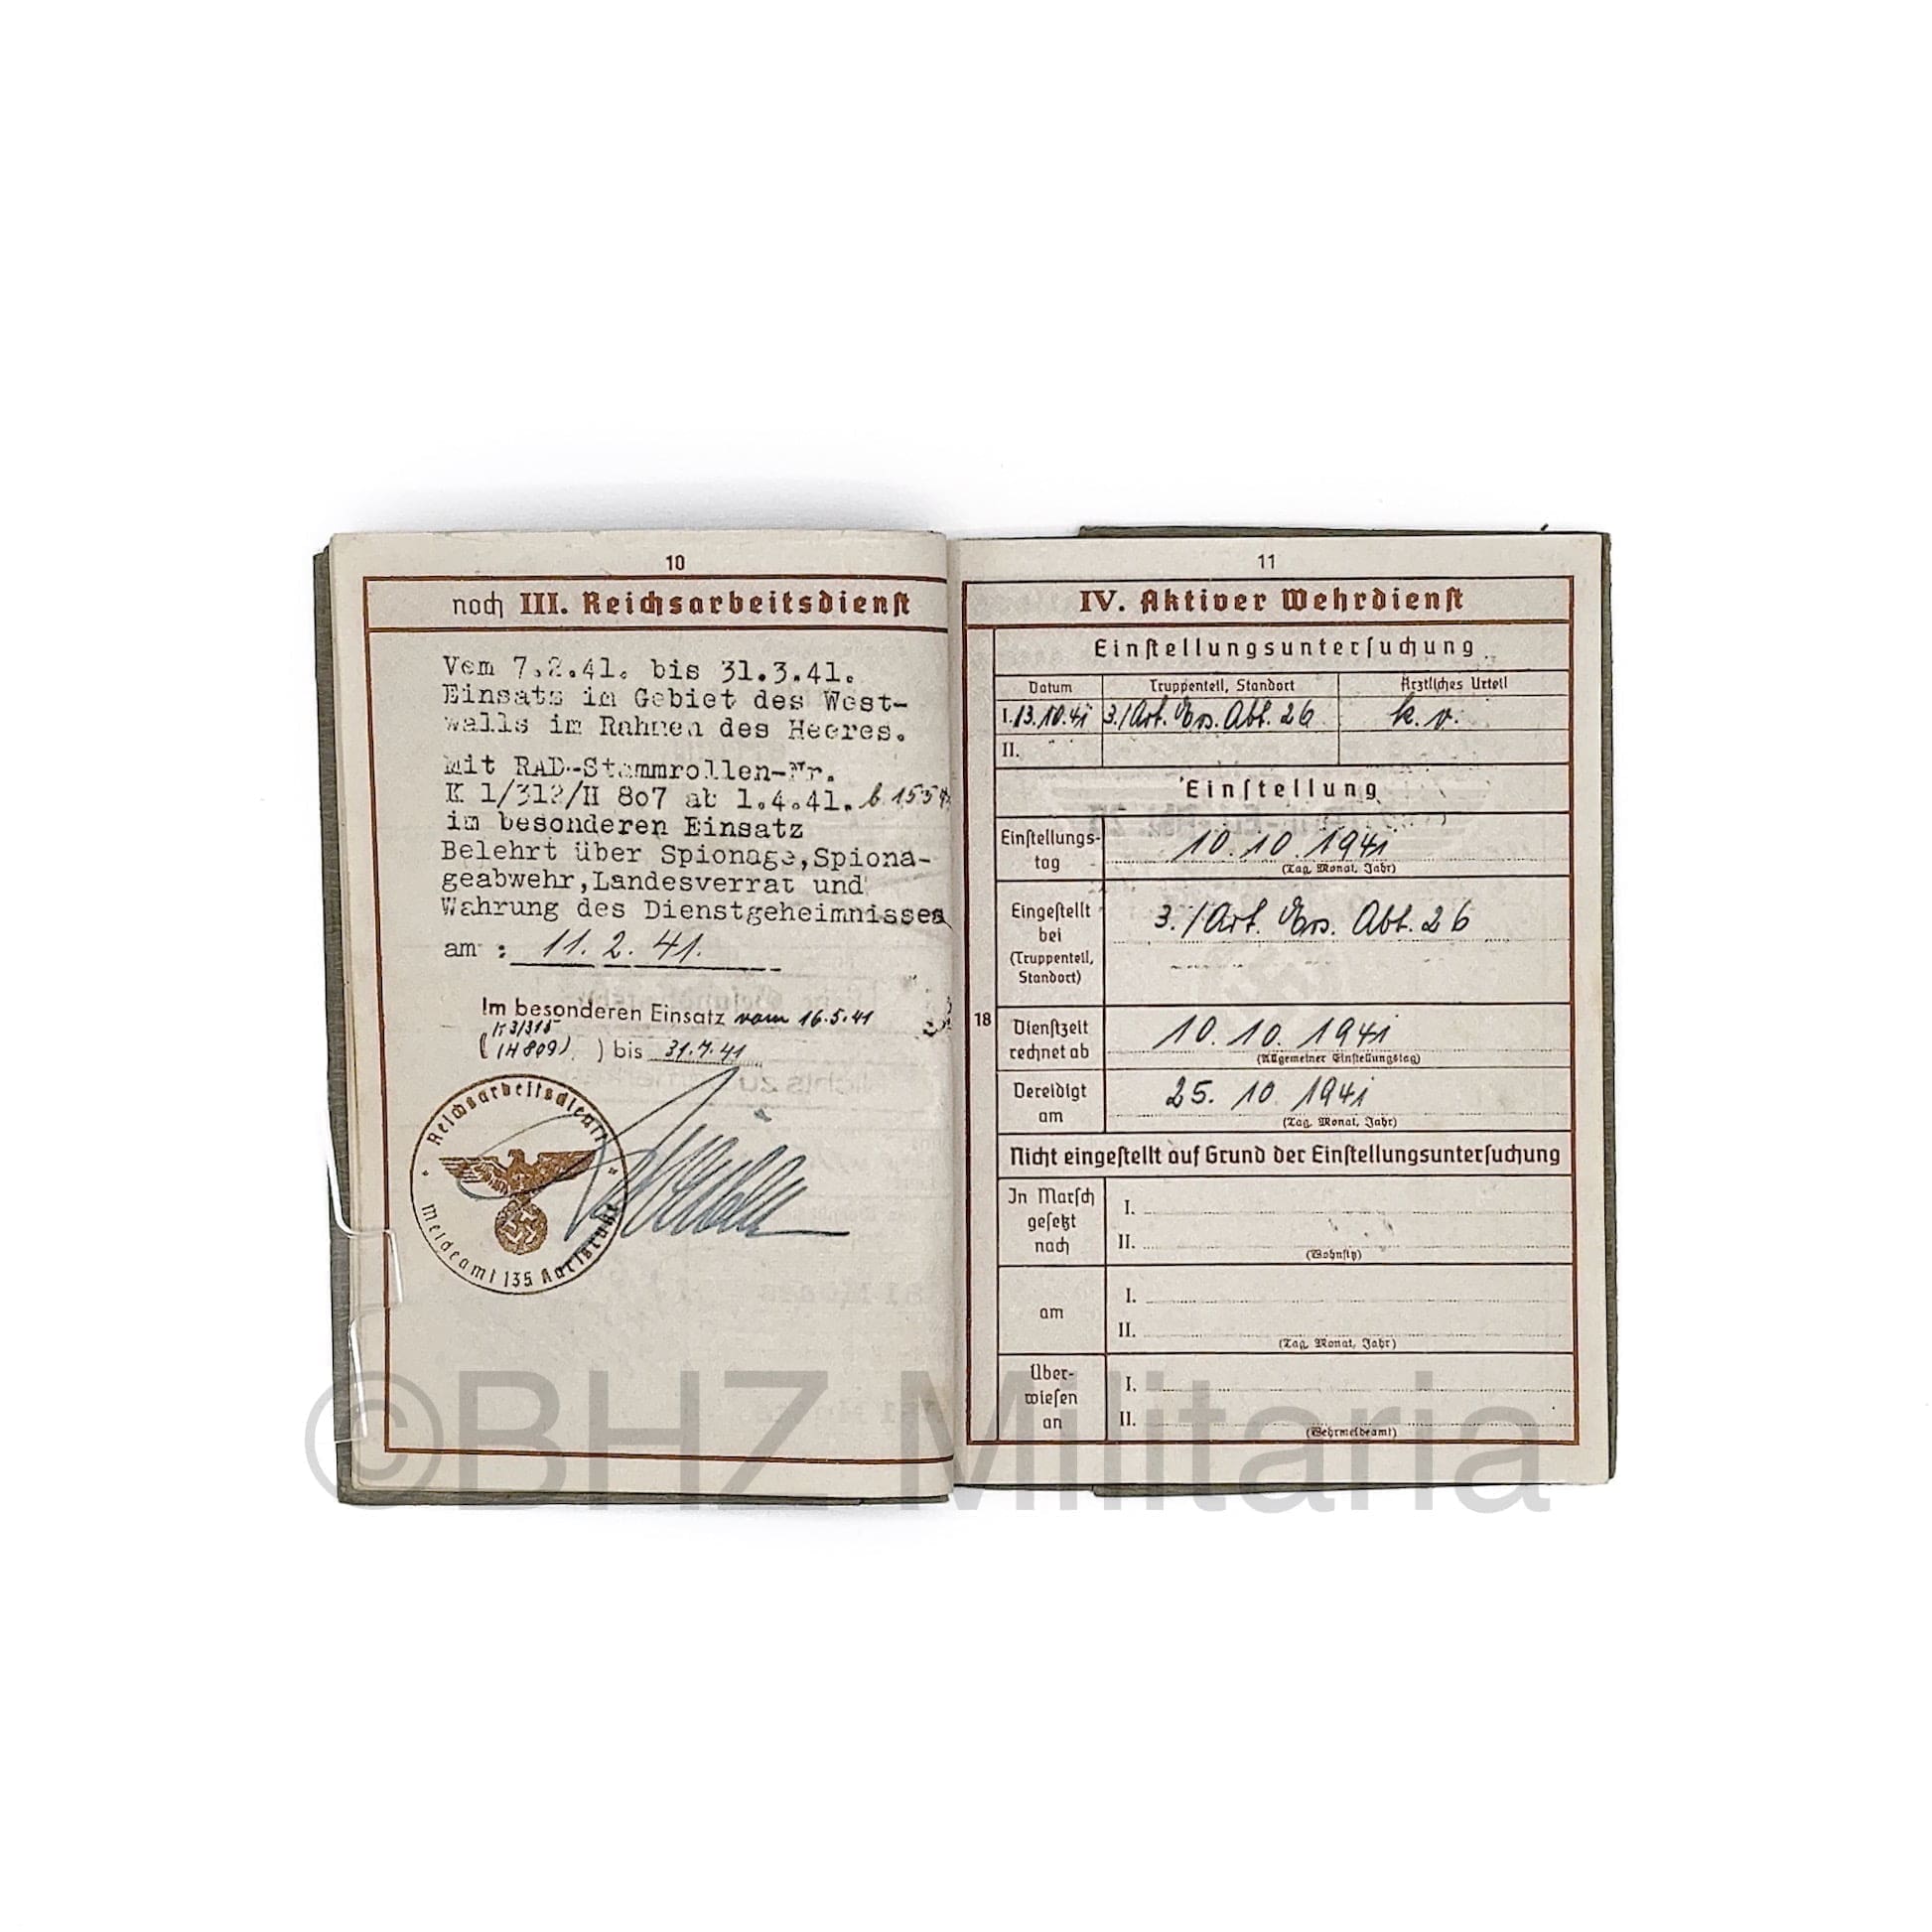 10
noch III. Reichsarbeitsdienst
Vom 7.2.41. bis 31.3.41.
Einsatz im Gebiet des West-
walls im Rahmen des Heeres.
Mit RAD-Stammrollen-Nr.
K 1/312/H 807 ab 1.4.41. b. 15.5.41
im besonderen Einsatz
Belehrt über Spionage,Spiona-
geabwehr,Landesverrat und
Wahrung des Dienstgeheimnisses
am : 11. 2. 41.
Im besonderen Einsatz vom 16.5.41
K 3/315
( 1H 809) ) bis 31.7.41
Reichsarbeitsdienst
Meldeamt 135 Karlsruhe
11
IV. Aktiver Wehrdienst
Einstellungsuntersuchung
Datum Truppenteil, Standort Ärztliches Urteil
I. 13.10.41 3./Art. Ers. Abt. 26 k. v.
II.
Einstellung
Einstellungs-
tag
10. 10. 1941
(Tag, Monat, Jahr)
Eingestellt
bei
(Truppenteil,
Standort)
3./Art. Ers. Abt. 26
18
Dienstzeit
rechnet ab
10. 10. 1941
(Allgemeiner Einstellungstag)
Vereidigt
am
25. 10. 1941
(Tag, Monat, Jahr)
Nicht eingestellt auf Grund der Einstellungsuntersuchung
In Marsch
gesetzt
nach
I.
II.
(Wohnsitz)
am
I.
II.
(Tag, Monat, Jahr)
Über-
wiesen
an
I.
II.
(Wehrmeldeamt)
©BHZ Militaria